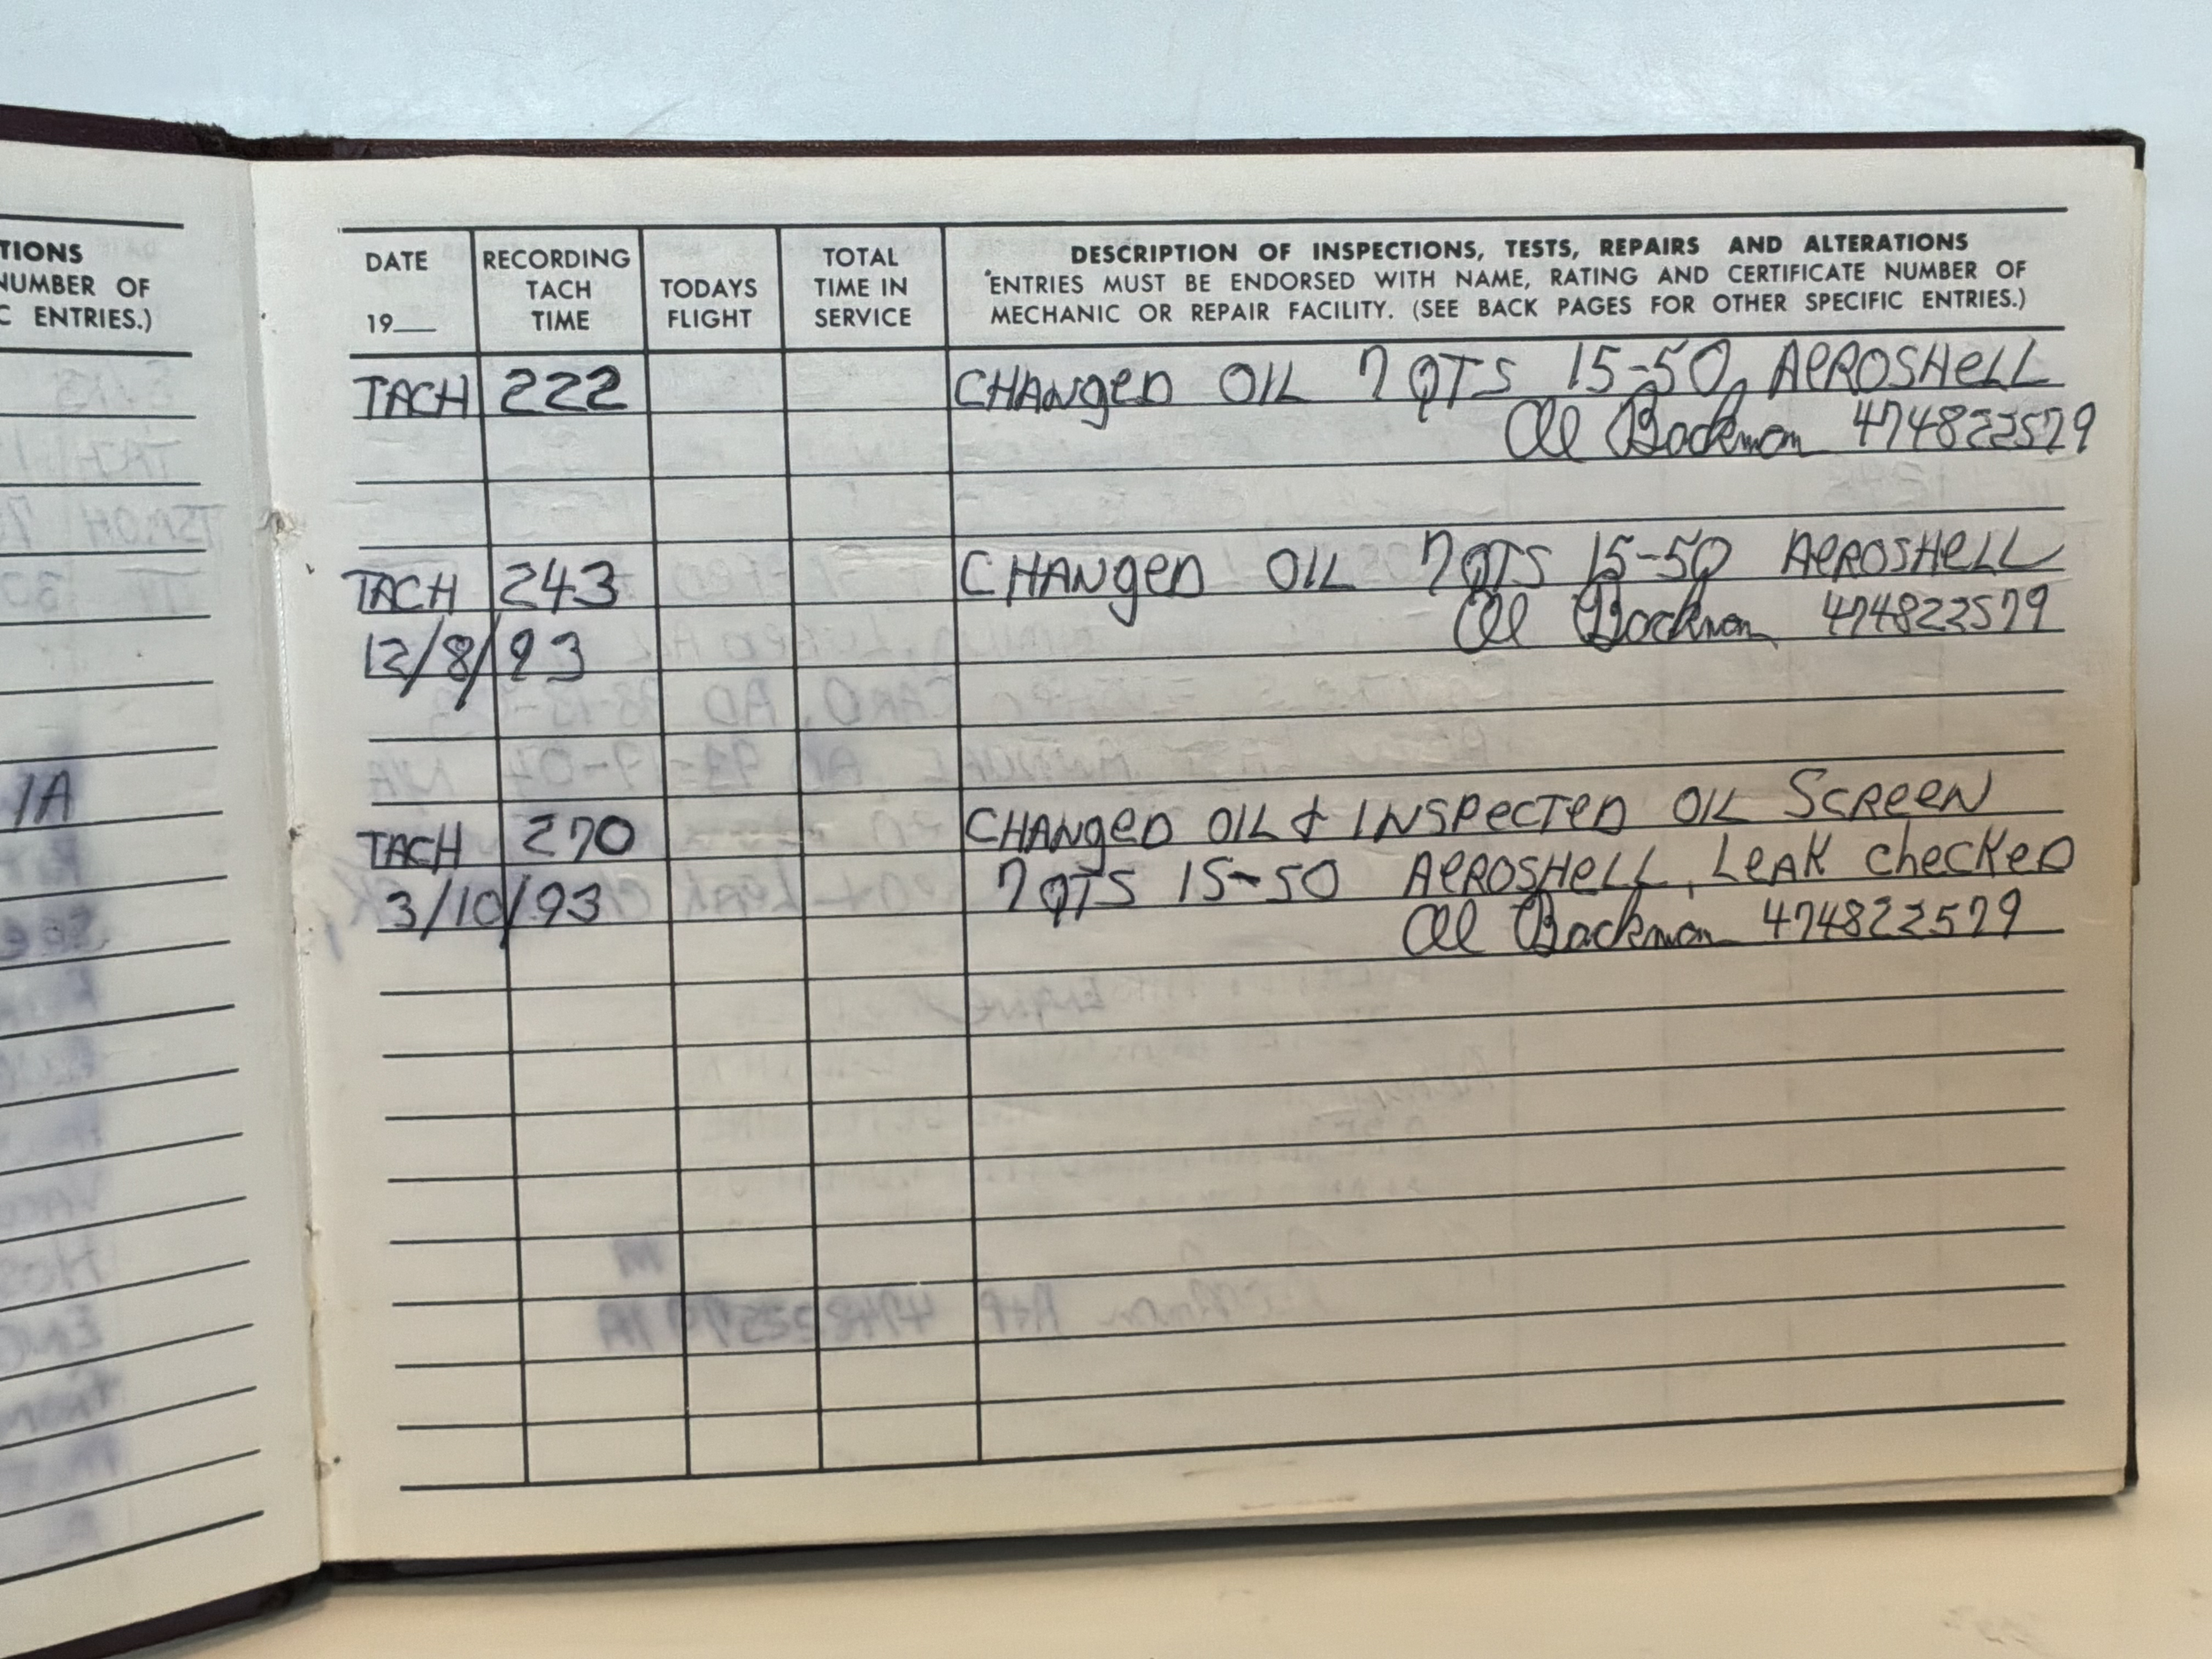 TIONS
NUMBER OF
C ENTRIES.)
IA
DATE
19
RECORDING
TACH
TIME
TODAYS
FLIGHT
TOTAL
TIME IN
SERVICE
DESCRIPTION OF INSPECTIONS, TESTS, REPAIRS AND ALTERATIONS
*ENTRIES MUST BE ENDORSED WITH NAME, RATING AND CERTIFICATE NUMBER OF
MECHANIC OR REPAIR FACILITY. (SEE BACK PAGES FOR OTHER SPECIFIC ENTRIES.)
TACH 222 CHANgeD OIL 7 QTS 15-50 AeROSHeLL
Al Backman 474822579
TACH 243 CHANgeD OIL 7 QTS 15-50 AeROSHeLL
Al Backman 474822579
12/8/93
TACH 270 CHANgeD OIL & INSPeCTeD OIL SCReeN
3/10/93 7 QTS 15-50 AeROSHeLL, LeAK checKeD
Al Backman 474822579